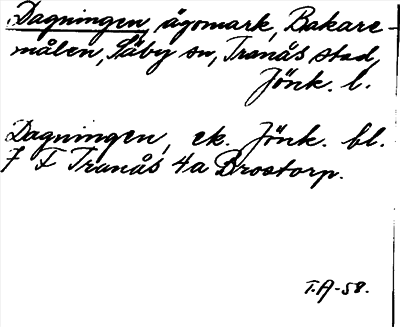 Dagningen, ägomark, Bakare-
målen, Säby sn, Tranås stad,
Jönk. l.
Dagningen, ek. Jönk. bl.
7 F Tranås 4a Brostorp.
T.A-58.